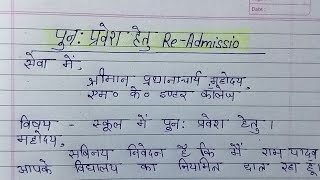 पुनः प्रवेश हेतु Re-Admissio
सेवा में,
श्रीमान प्रधानाचार्य महोदय,
एम० के० इण्टर कॉलेज
विषय - स्कूल में पुनः प्रवेश हेतु।
महोदय,
सविनय निवेदन है कि मैं राम यादव
आपके विद्यालय का नियमित छात्र रहा हूँ।